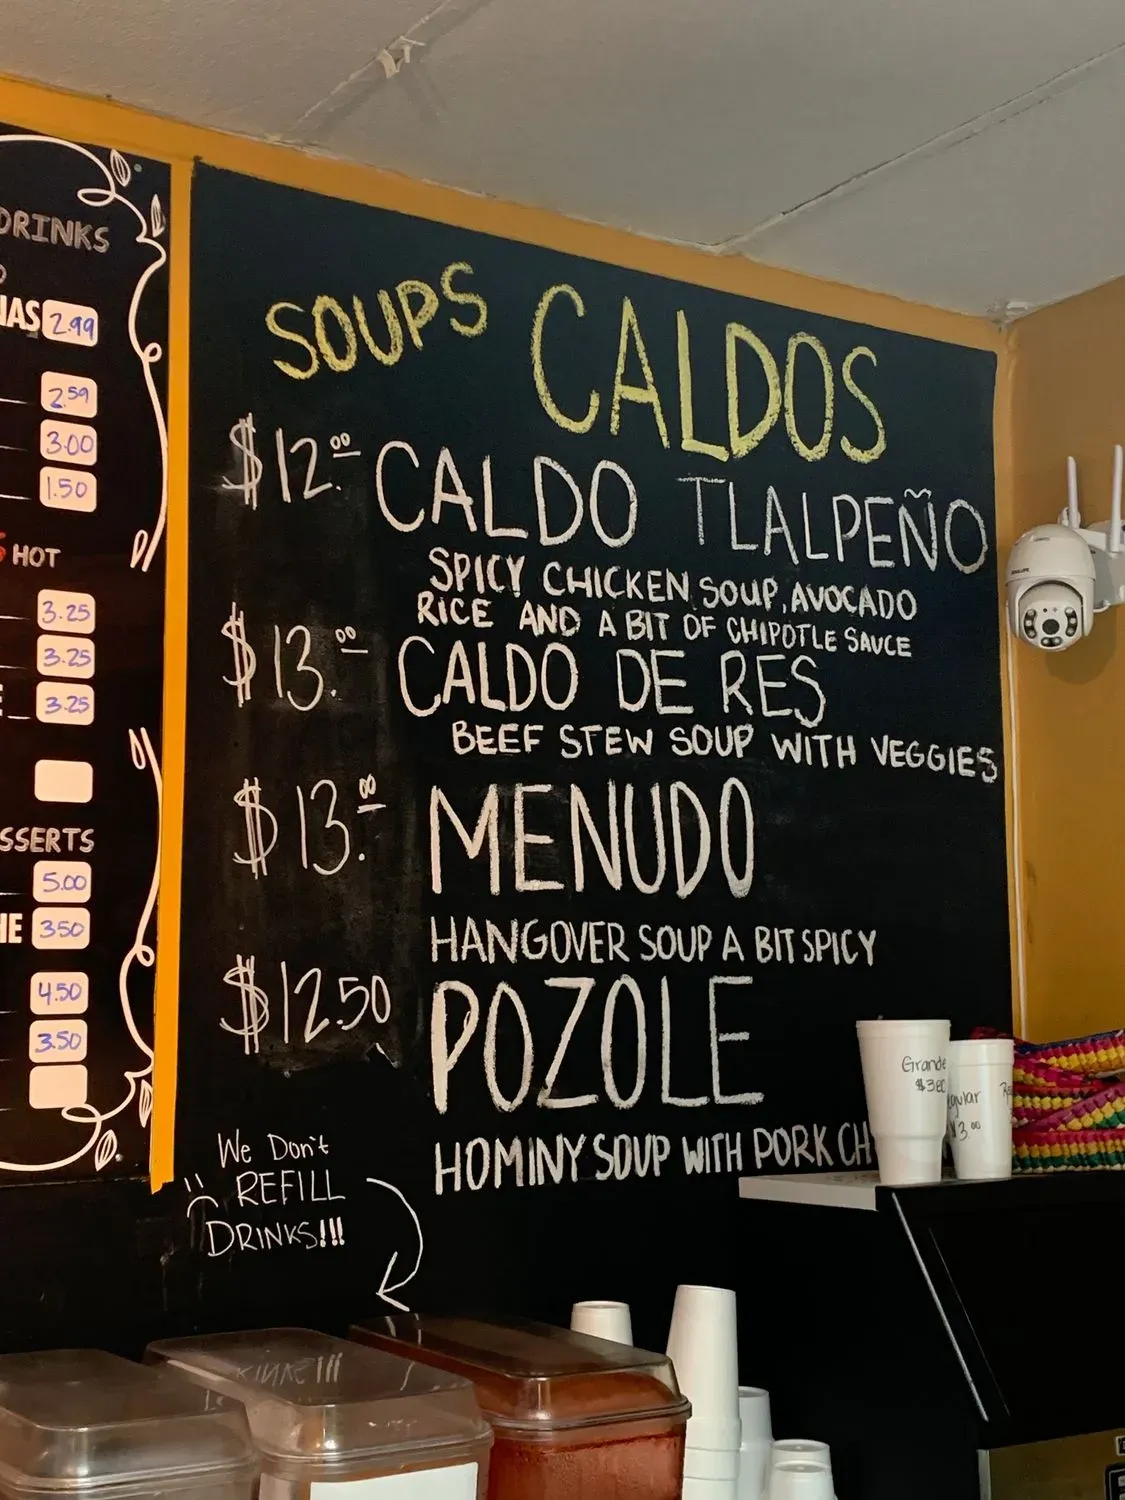 DRINKS
2.99
2.59
3.00
1.50
HOT
3.25
3.25
3.25
5.00
3.50
4.50
3.50
SOUPS CALDOS
$12.00 CALDO TLALPEÑO
SPICY CHICKEN SOUP, AVOCADO
RICE AND A BIT OF CHIPOTLE SAUCE
$13.00 CALDO DE RES
BEEF STEW SOUP WITH VEGGIES
$13.00 MENUDO
HANGOVER SOUP A BIT SPICY
$12.50 POZOLE
HOMINY SOUP WITH PORK
We Don't
REFILL
DRINKS!!!
Grande